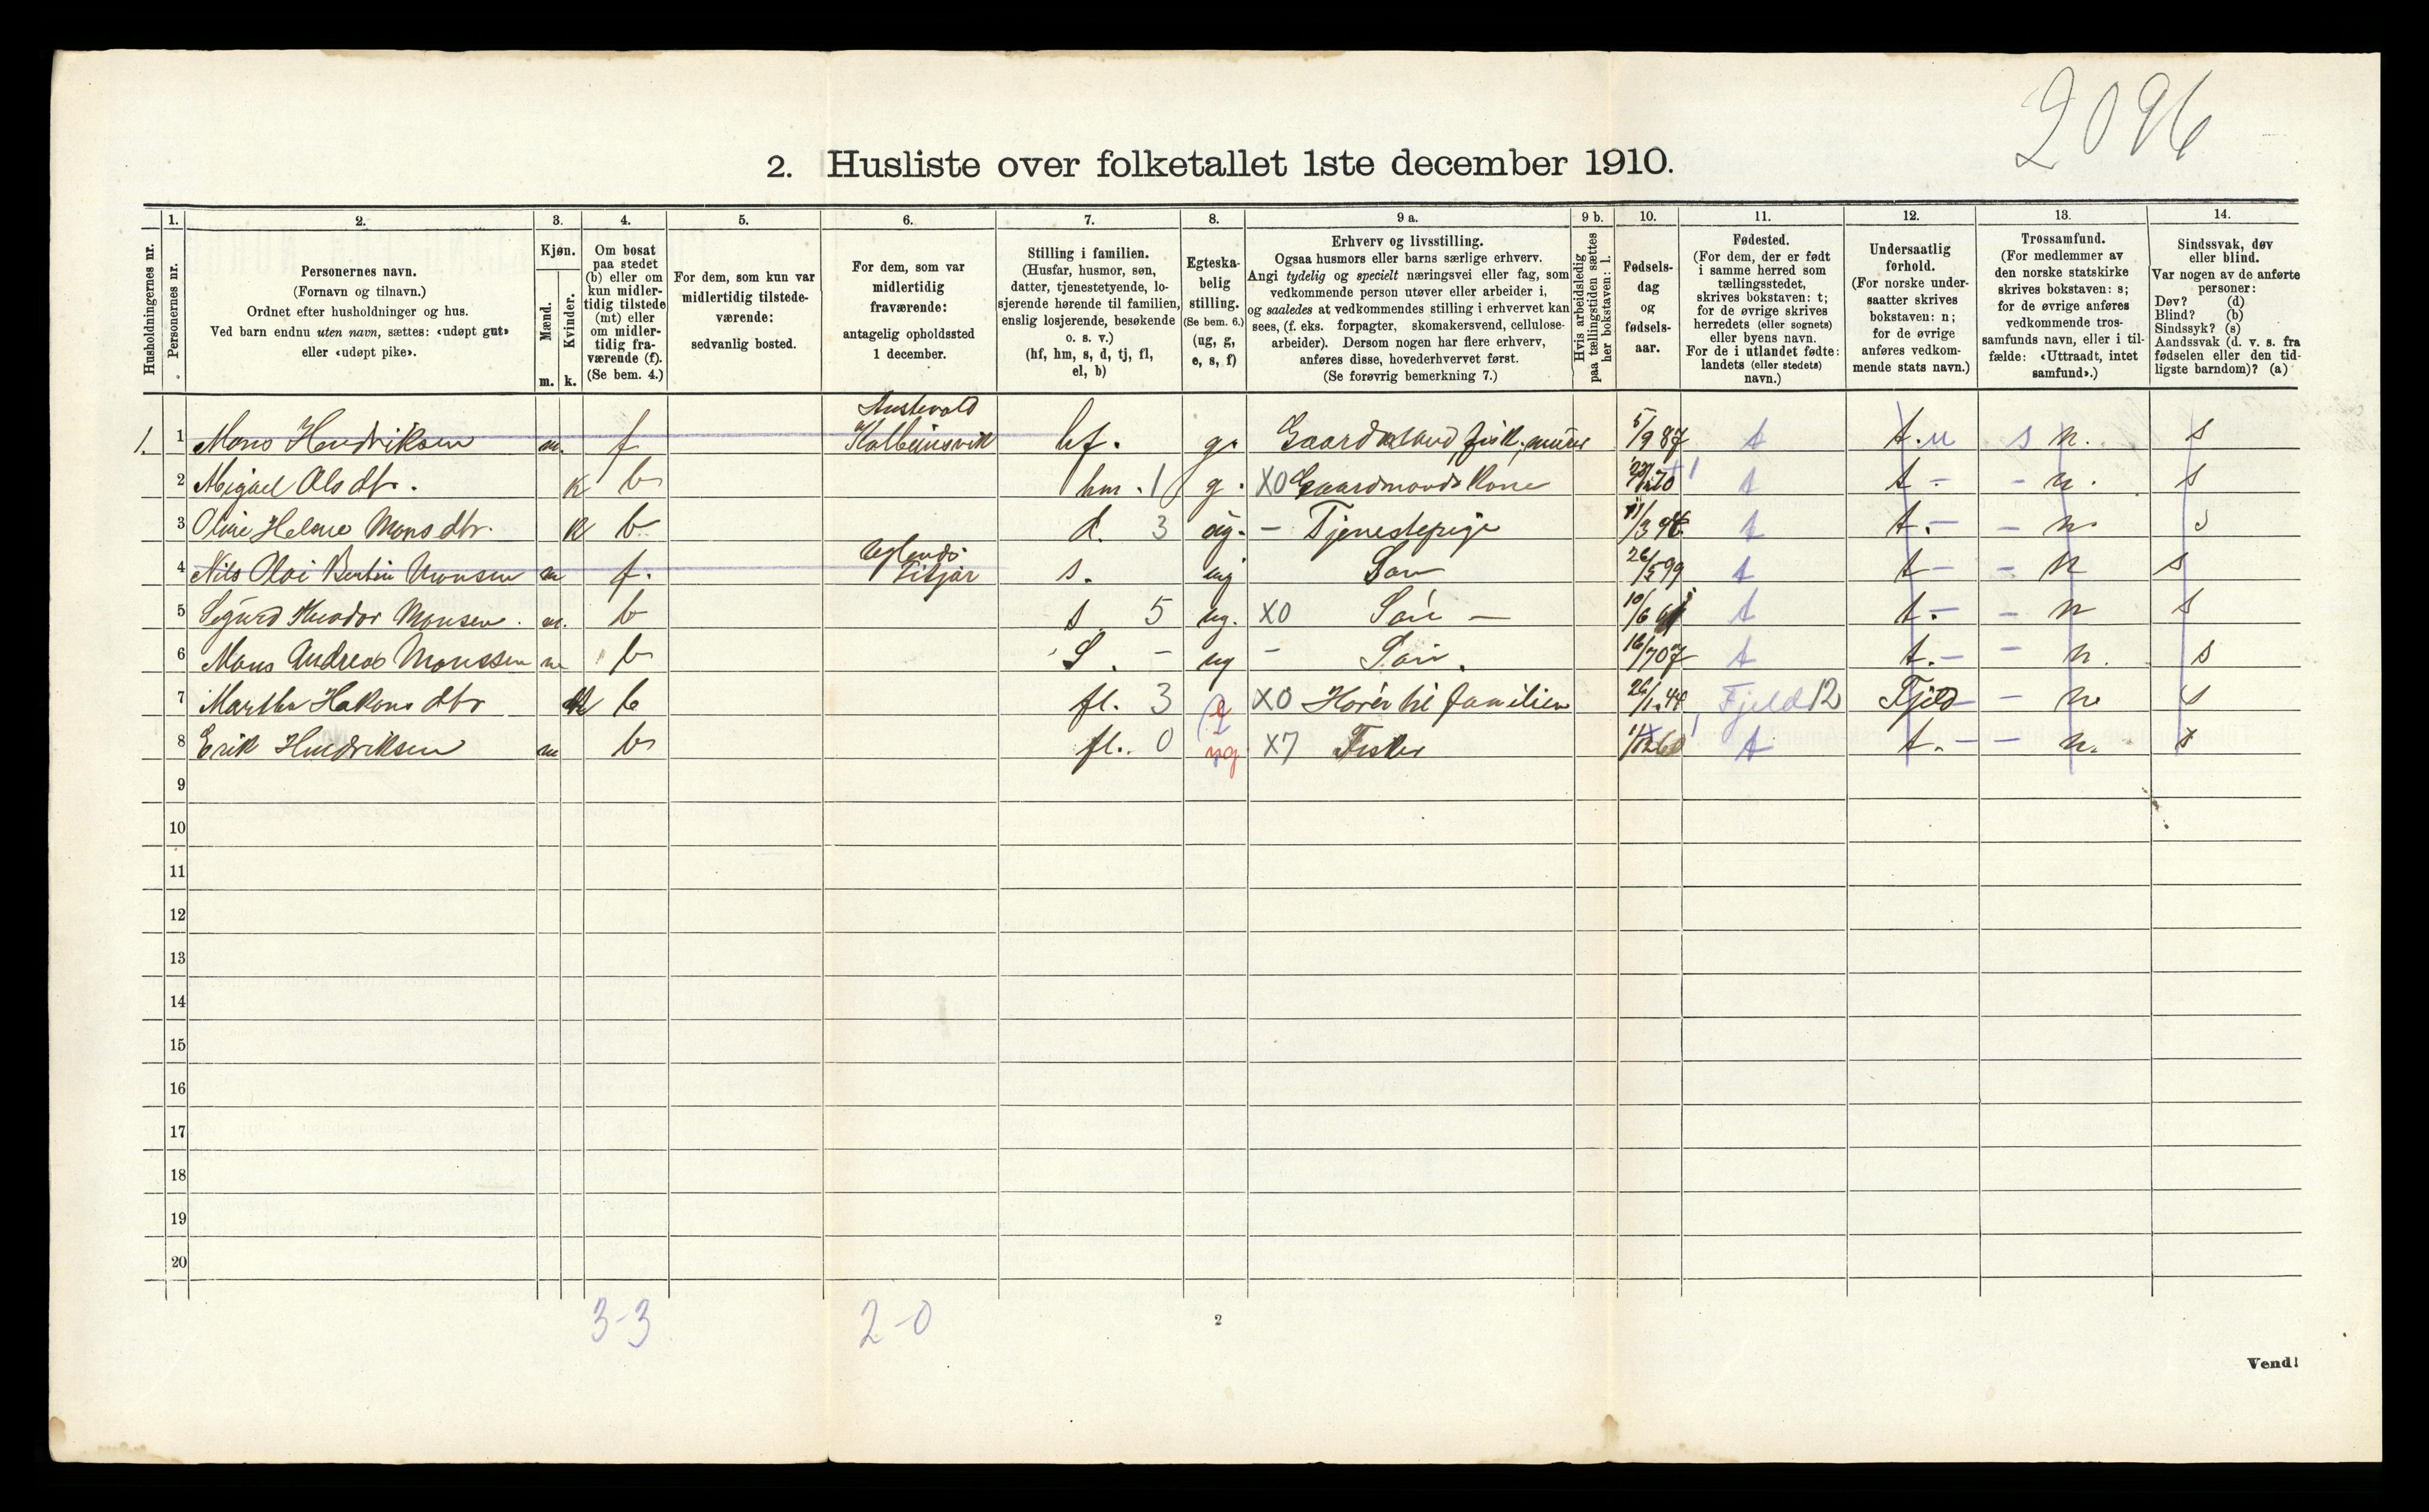 2096
2. Husliste over folketallet 1ste december 1910.
Husholdningernes nr.
1.
Personernes nr.
2.
Personernes navn.
(Fornavn og tilnavn.)
Ordnet efter husholdninger og hus.
Ved barn endnu uten navn, sættes: «udøpt gut»
eller «udøpt pike».
3.
Kjøn.
Mænd.
Kvinder.
m. k.
4.
Om bosat
paa stedet
(b) eller om
kun midler-
tidig tilstede
(mt) eller
om midler-
tidig fra-
værende (f).
(Se bem. 4.)
5.
For dem, som kun var
midlertidig tilstede-
værende:
sedvanlig bosted.
6.
For dem, som var
midlertidig
fraværende:
antagelig opholdssted
1 december.
7.
Stilling i familien.
(Husfar, husmor, søn,
datter, tjenestetyende, lo-
sjerende hørende til familien,
enslig losjerende, besøkende
o. s. v.)
(hf, hm, s, d, tj, fl,
el, b)
8.
Egteska-
belig
stilling.
(Se bem. 6.)
(ug, g,
e, s, f)
9 a.
Erhverv og livsstilling.
Ogsaa husmors eller barns særlige erhverv.
Angi tydelig og specielt næringsvei eller fag, som
vedkommende person utøver eller arbeider i,
og saaledes at vedkommendes stilling i erhvervet kan
sees, (f. eks. forpagter, skomakersvend, cellulose-
arbeider). Dersom nogen har flere erhverv,
anføres disse, hovederhvervet først.
(Se forøvrig bemerkning 7.)
9 b.
Hvis arbeidsledig
paa tællingstiden sættes
her bokstaven: l.
10.
Fødsels-
dag
og
fødsels-
aar.
11.
Fødested.
(For dem, der er født
i samme herred som
tællingsstedet,
skrives bokstaven: t;
for de øvrige skrives
herredets (eller sognets)
eller byens navn.
For de i utlandet fødte:
landets (eller stedets)
navn.)
12.
Undersaatlig
forhold.
(For norske under-
saatter skrives
bokstaven: n;
for de øvrige
anføres vedkom-
mende stats navn.)
13.
Trossamfund.
(For medlemmer av
den norske statskirke
skrives bokstaven: s;
for de øvrige anføres
vedkommende tros-
samfunds navn, eller i til-
fælde: «Uttraadt, intet
samfund».)
14.
Sindssvak, døv
eller blind.
Var nogen av de anførte
personer:
Døv? (d)
Blind? (b)
Sindssyk? (s)
Aandssvak (d. v. s. fra
fødselen eller den tid-
ligste barndom)? (a)
Austevold
1. 1 Mons Hendriksen m. f Kolbeinsvik hf. g. fisk, 5/9 87 t t. n s n. s
2 Abigael Olsdtr. k b hm. 1 g. X0 Gaardmands Kone 70 t t. - - n. s
3 Oline Helene Monsdtr. k b d. 3 ug. - Tjenestepige 11/3 94 t t. - - n. s
4 Nils Olai Bertin Monsen m f. Fitjar s. ug Søn 26/5 99 t t - - n s
5 Sigurd Theodor Monsen. m. b s 5 ug. X0 Søn - 10/6 t t. - - n s
6 Mons Andreas Monssen m b S. - ug - Søn. 16/7 07 t t. - - n. s
7 Martha Hakons dtr k b fl. 3 e X0 Hører til familien 26/1 44 Fjeld 12 Fjeld - n. s
8 Erik Hendriksen m b fl. 0 ug X7 Fisker t t. - - n. s
9
10
11
12
13
14
15
16
17
18
19
20
3-3 2-0
2
Vend!